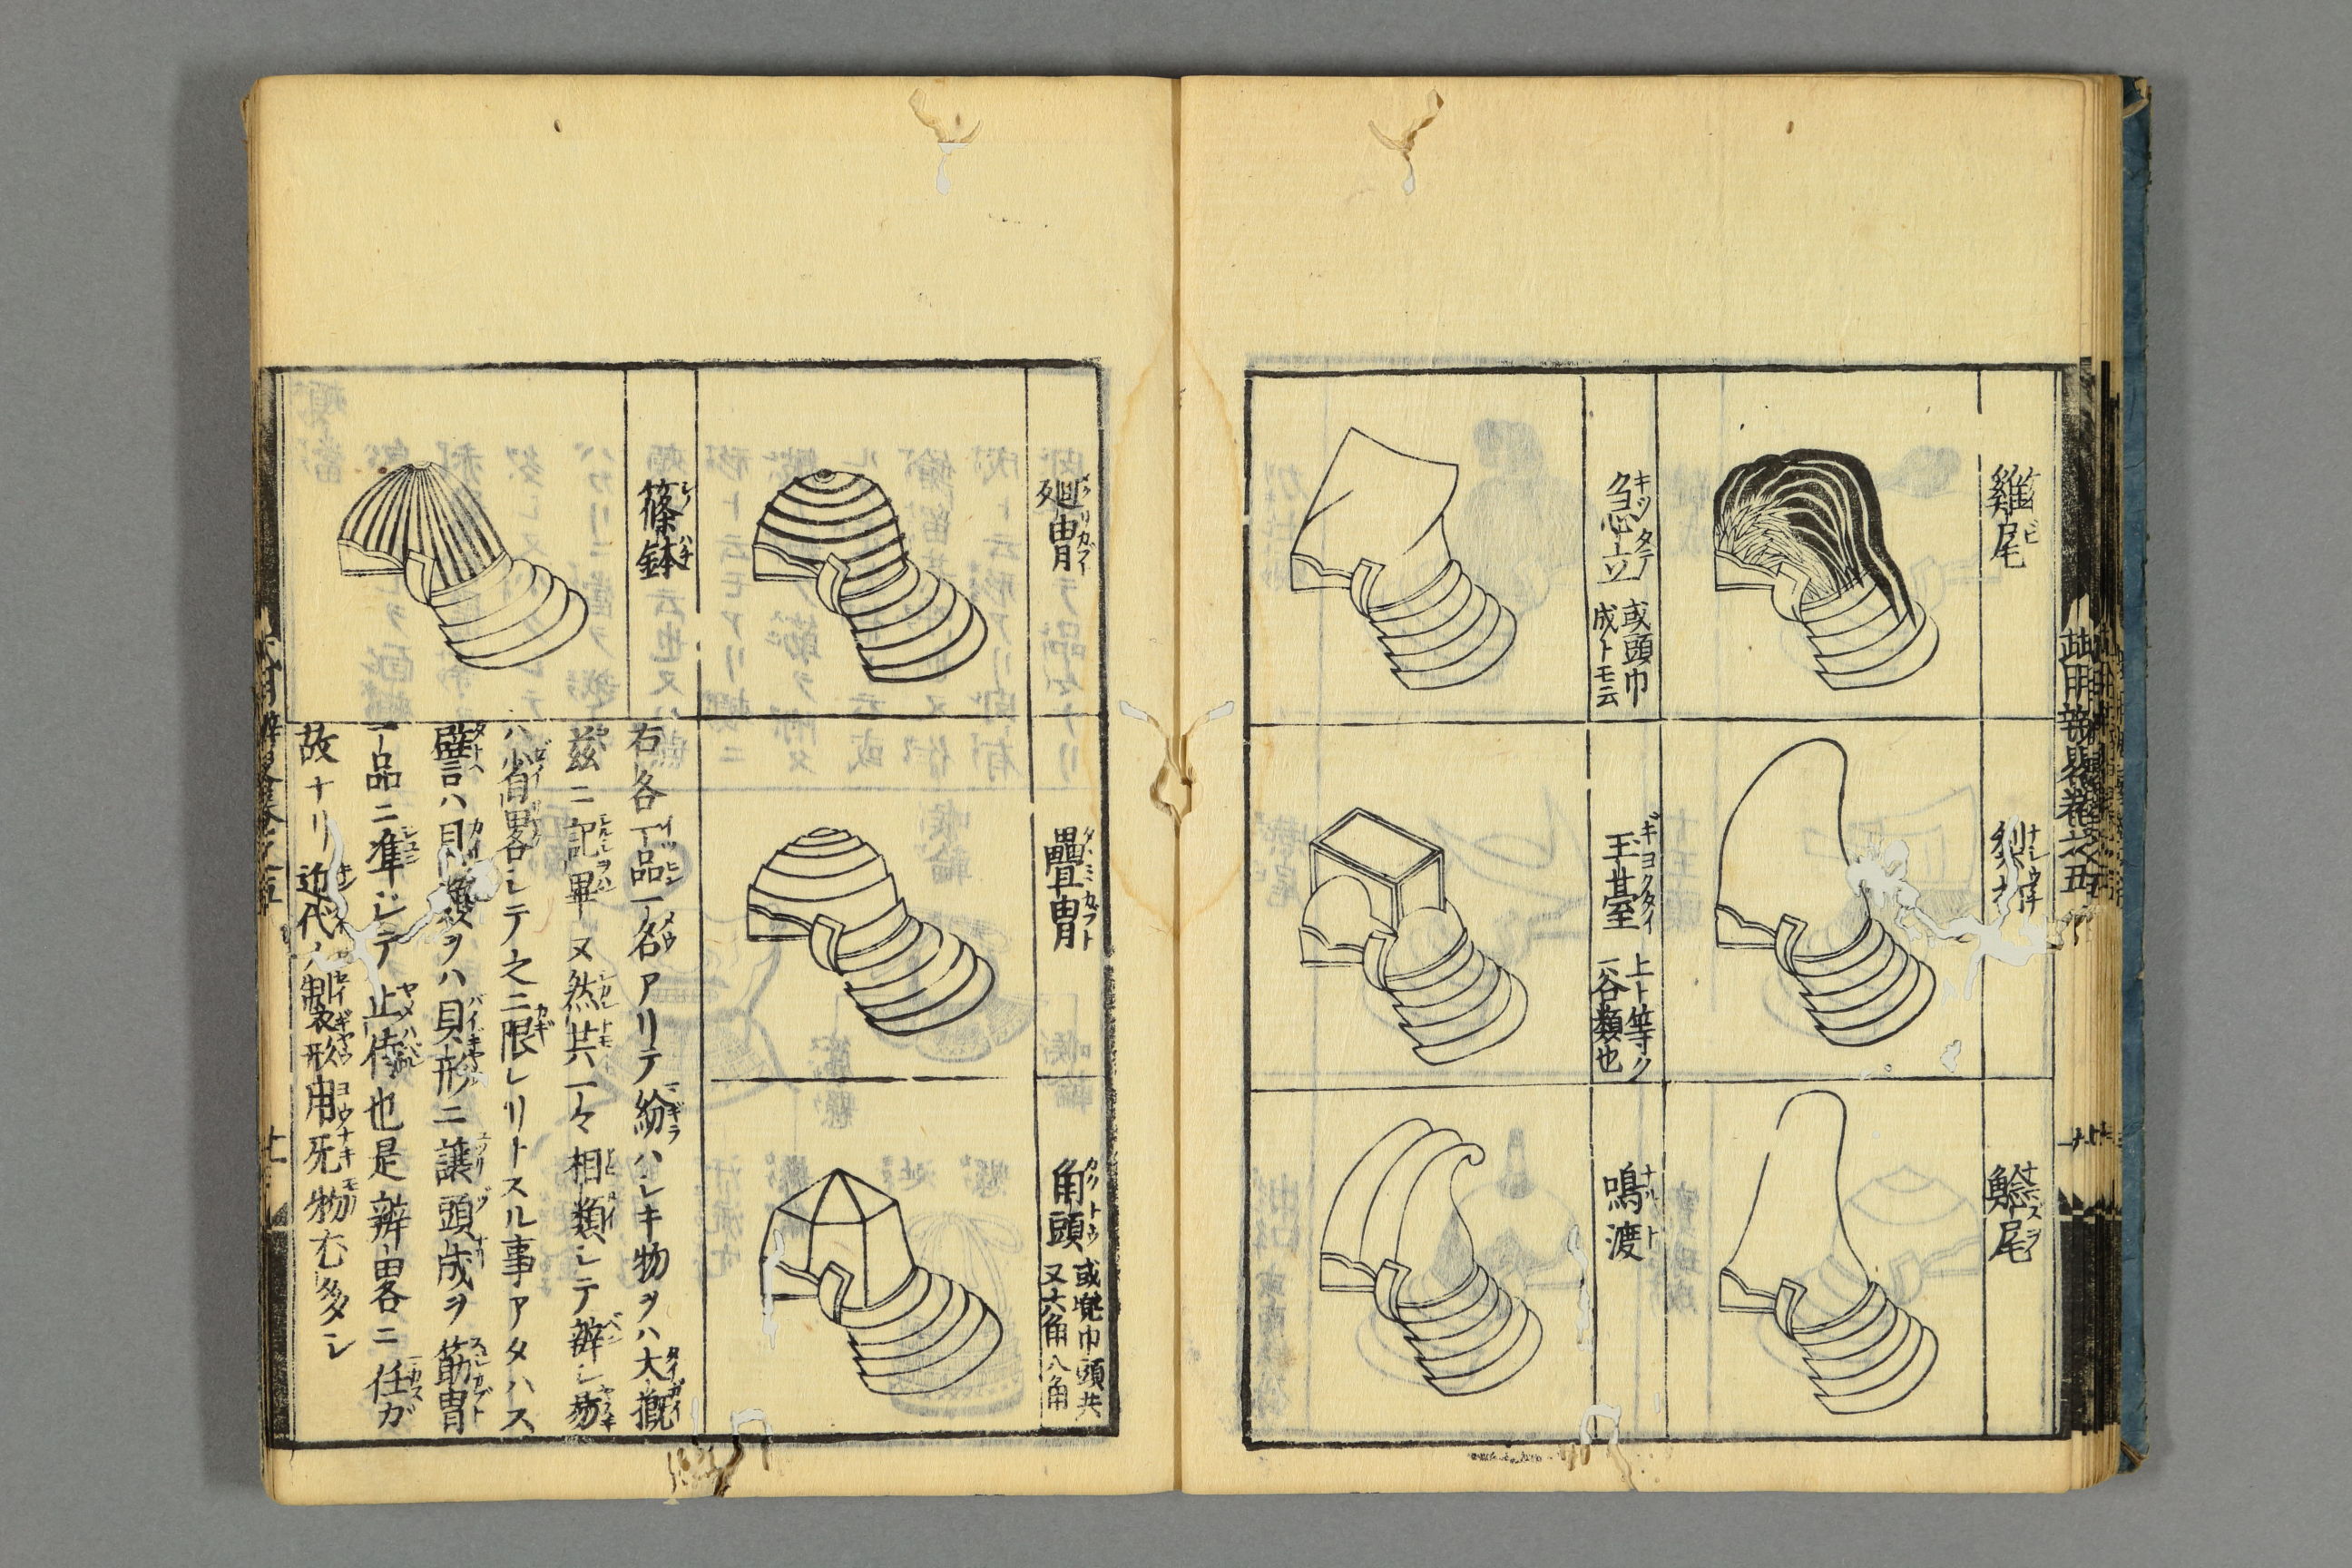 雞尾
梨打
鯰尾
急立 或頭巾
成トモ云
玉臺 上ト等ク
一谷類也
鳴渡
廻冑
疊冑
角頭 或兜巾頭共
又六角八角
篠鉢
右各一品一名アリテ紛ハレキ物ヲハ大概
茲ニ記畢又然共一々相類シテ辨シ
ハ省畧シテ之ニ限レリトスル事アタハス
譬ハ貝ヲハ貝形ニ讓頭成ヲ筋冑
一品ニ準シテ止侍也是辨畧ニ任ガ
故ナリ近代ノ製形用无物尤多シ